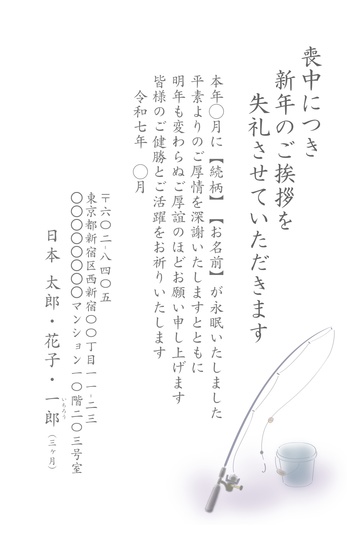 喪中につき
新年のご挨拶を
失礼させていただきます
本年〇月に【続柄】【お名前】が永眠いたしました
平素よりのご厚情を深謝いたしますとともに
明年も変わらぬご厚誼のほどお願い申し上げます
皆様のご健勝とご活躍をお祈りいたします
令和七年 〇月
〒六〇二-八四〇五
東京都新宿区西新宿〇〇丁目一一-二三
〇〇〇〇〇〇〇マンション一〇階二〇三号室
日本 太郎・花子・一郎（三ヶ月）
いちろう